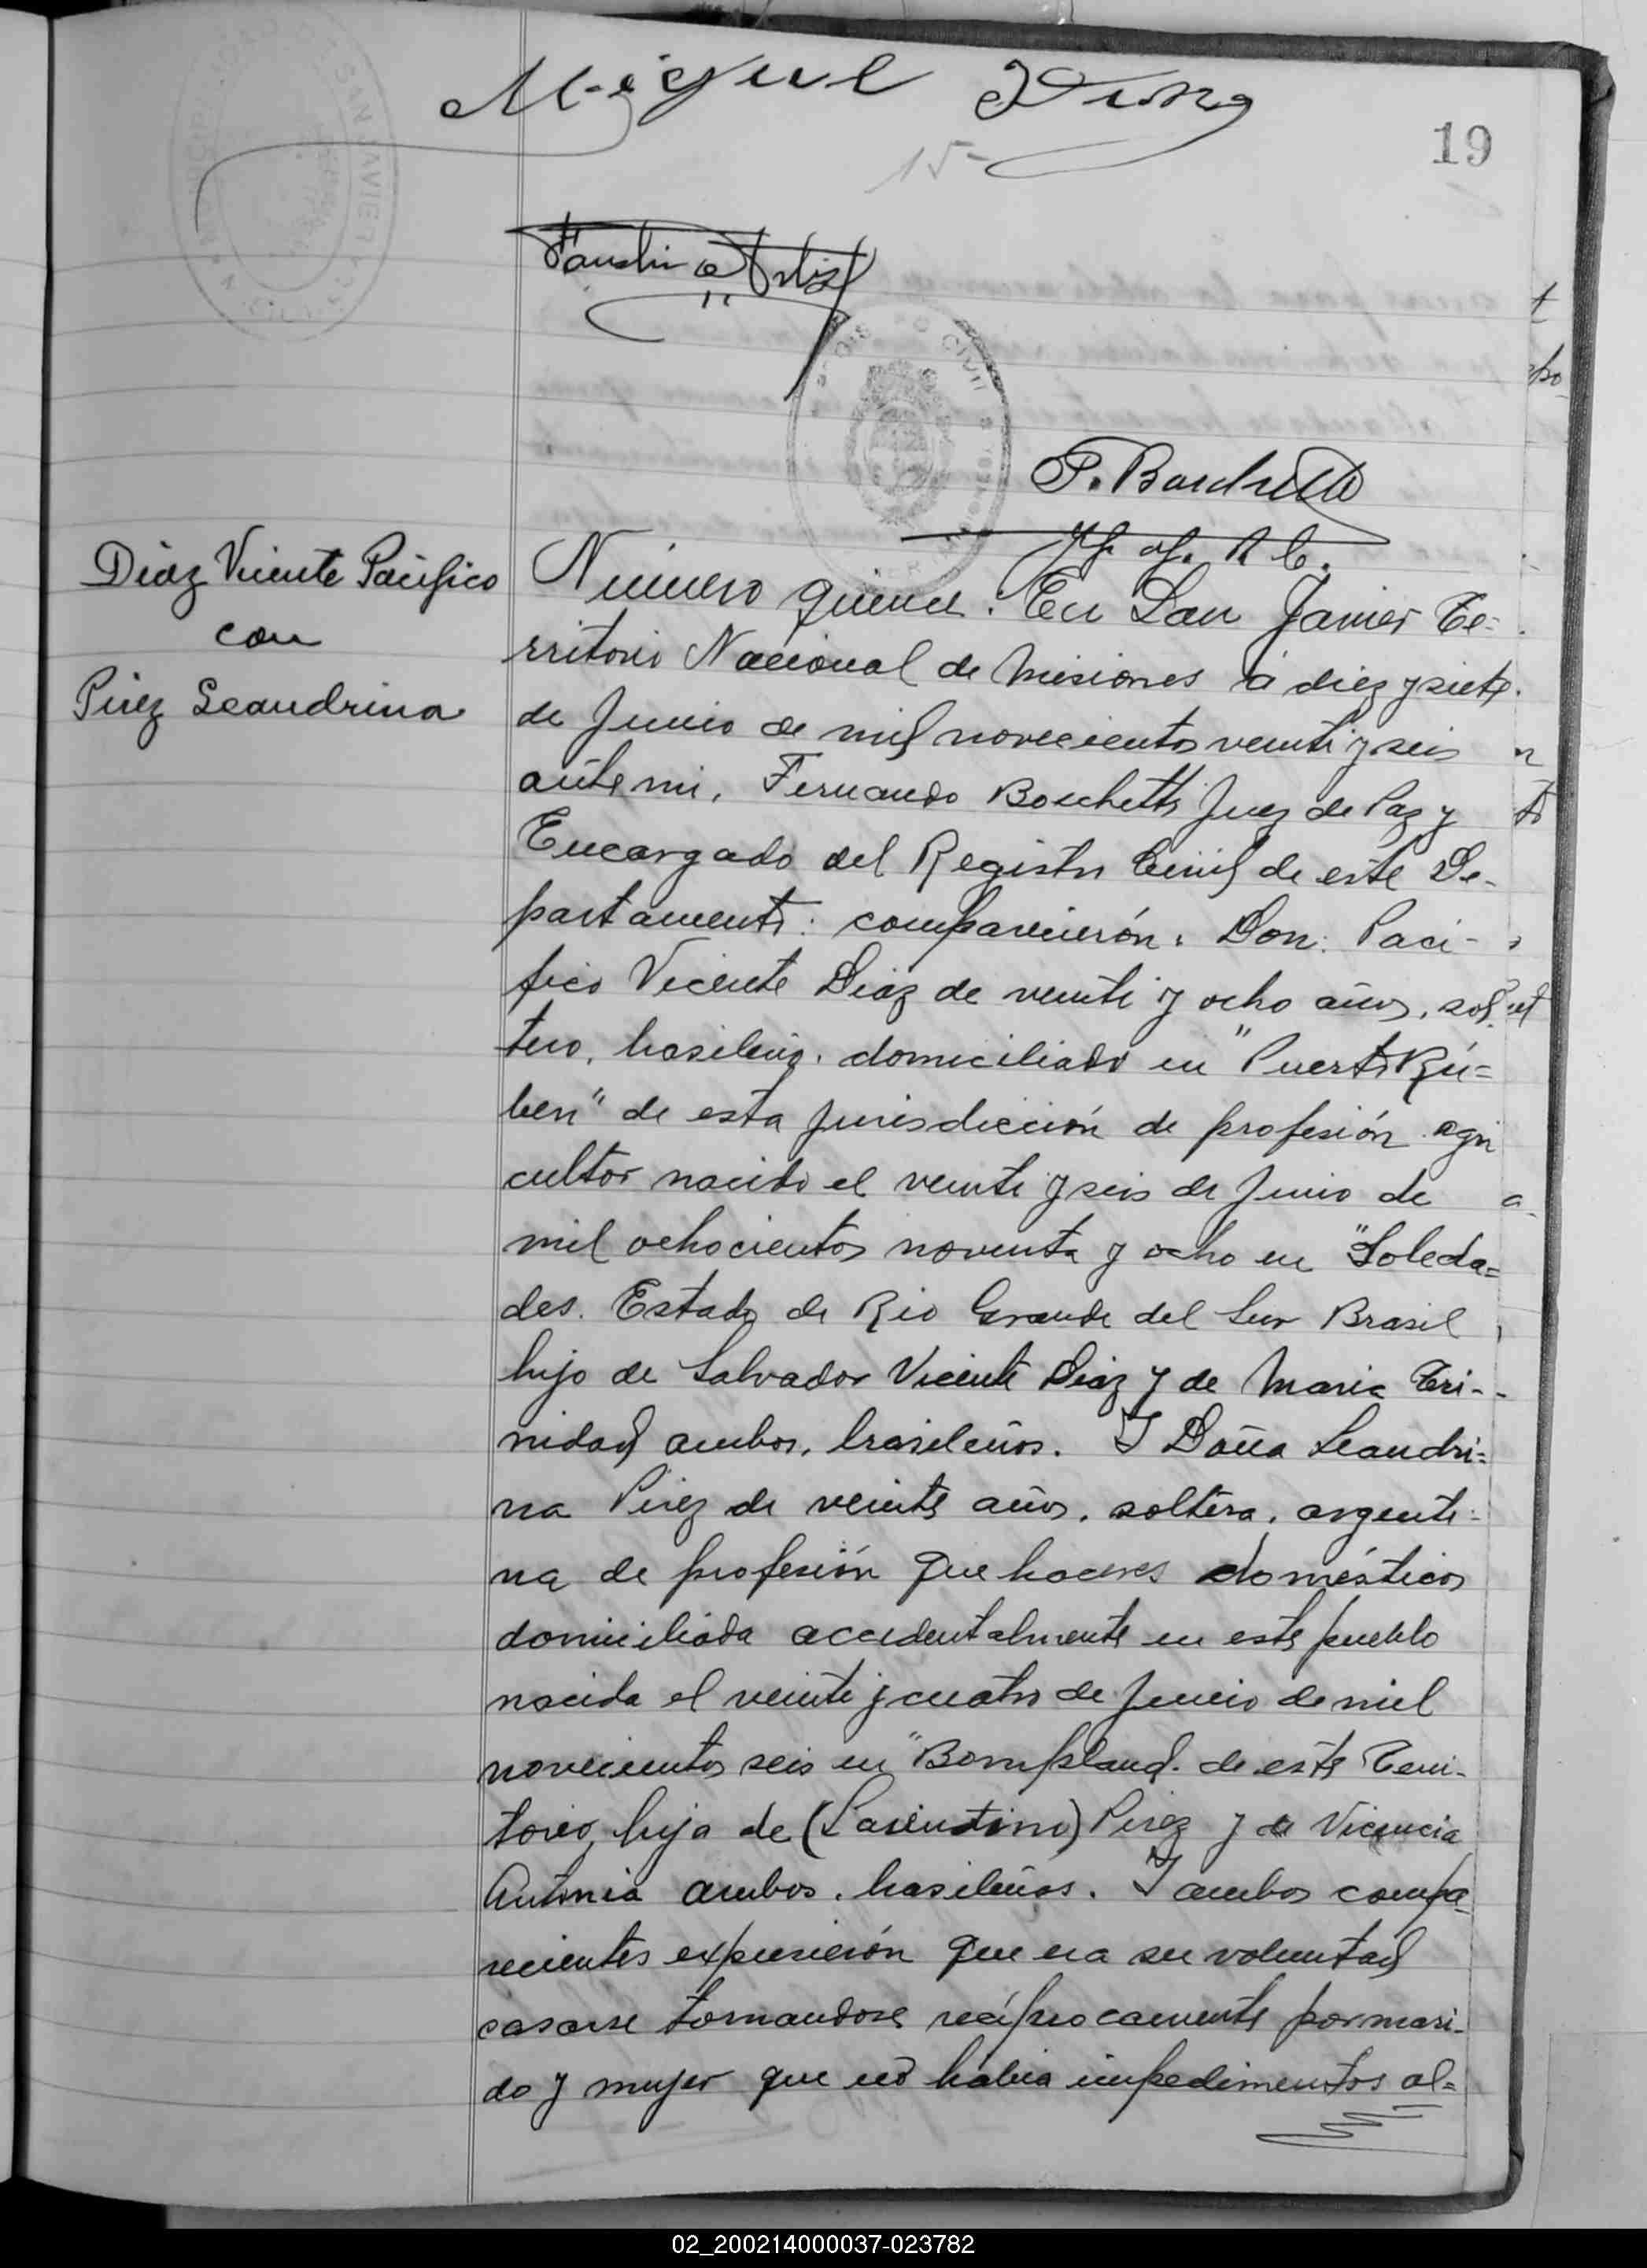 Miguel
19
15-
F. Boschetti
Jf. of. R. C.
Diaz Vicente Pacifico
con
Pirez Leandrina
Número quince. En San Javier Te=
rritorio Nacional de Misiones á diez y siete
de Junio de mil novecientos veinti y seis
ante mi, Fernando Boschetti Juez de Paz y
Encargado del Registro Civil de este De-
partamento: comparecierón. Don: Paci-
fico Vicente Diaz de veinti y ocho años, sol-
tero, brasileño, domiciliado en "Puerto Rú=
ben" de esta jurisdicción de profesión agri
cultor nacido el veinte y seis de Junio de
mil ochocientos noventa y ocho en "Soleda=
des. Estado de Rio Grande del Sur Brasil
hijo de Salvador Vicente Diaz y de Maria Tri-
nidad ambos, brasileños. Y Doña Leandri=
na Pirez de veinte años, soltera, argenti=
na de profesión que haceres domésticos
domiciliada accidentalmente en este pueblo
nacida el veinte y cuatro de Junio de mil
novecientos seis en "Bompland. de este Terri-
torio, hija de (Laurentino) Pirez y de Vicencia
Antonia ambos, brasileños. Y ambos compa-
recientes expusierón que era su voluntad
casarse tomandose recíprocamente por mari-
do y mujer que no habia impedimentos al=
02_200214000037-023782